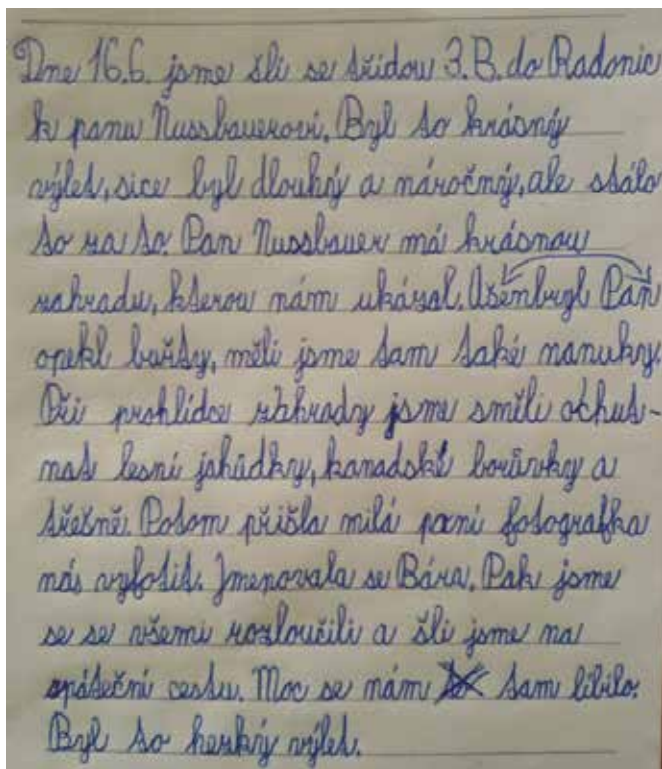 Dne 16.6. jsme šli se třídou 3.B. do Radonic
k panu Nussbauerovi. Byl to krásný
výlet, sice byl dlouhý a náročný, ale stálo
to za to. Pan Nussbauer má krásnou
zahradu, kterou nám ukázal. Ošenbrgl Pan
opekl buřty, měli jsme tam také nanuky.
Při prohlídce zahrady jsme směli ochut-
nat lesní jahůdky, kanadské borůvky a
třešně. Potom přišla milá paní fotografka
nás vyfotit. Jmenovala se Bára. Pak jsme
se se všemi rozloučili a šli jsme na
zpáteční cestu. Moc se nám tam líbilo.
Byl to hezký výlet.